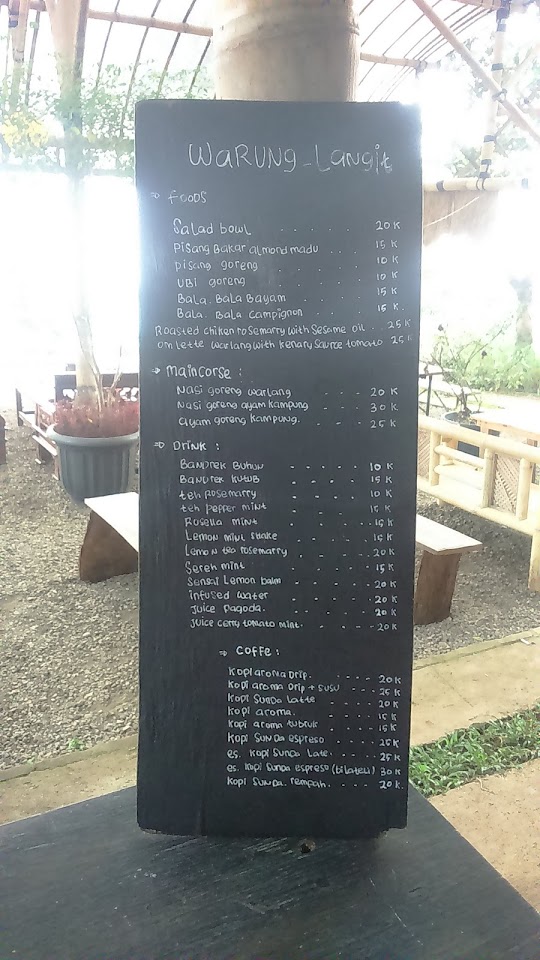 WaRUNG_Langit
⇒ Foods
Salad bowl . . . . . . 20 K
Pisang Bakar almond madu . . . 15 K
Pisang goreng . . . . . 10 K
UBI goreng . . . . . 10 K
Bala. Bala Bayam . . . . . 15 K
Bala. Bala Campignon . . . 15 K.
Roasted chiken rosemarry with Sesame oil . . 25 K
omlette warlang with kenary saurce tomato 25 K
→ Maincorse :
Nasi goreng warlang - - - - 20 K
Nasi goreng ayam kampung - - - 30 K
ayam goreng kampung. - - - - 25 K
⇒ Drink :
BANDrek BUHUN - - - - - 10 K
BANDrek KUTUB - - - - - 15 K
teh rosemarry - - - - - 10 K
teh pepper mint - - - - 15 K
Rosella mint - - - - 15 K
Lemon mint shake - - - - 15 K
Lemon tea rosemarry - - - - 20 K
Sereh mint - - - - - 15 K
Sensai Lemon balm - - - - 20 K
infused water - - - - 20 K
Juice Pagoda. - - - - 20 K
Juice cerry tomato mint. - - - - 20 K
⇒ COFFe :
KOPI aroma Drip. - - - - 20 K
KOPI aroma Drip + SUSU - - - 25 K
KOPI SUNDa Latte - - - - 20 K
KOPI aroma. - - - - 15 K
KOPI aroma tubruk - - - - 15 K
KOPI SUNDa espreso - - - - 25 K
es. KOPI SUNDa Late. - - - - 25 K
es. KOPI SUNDa espreso 30 K
KOPI SUNDa. rempah. - - - - 20 K.